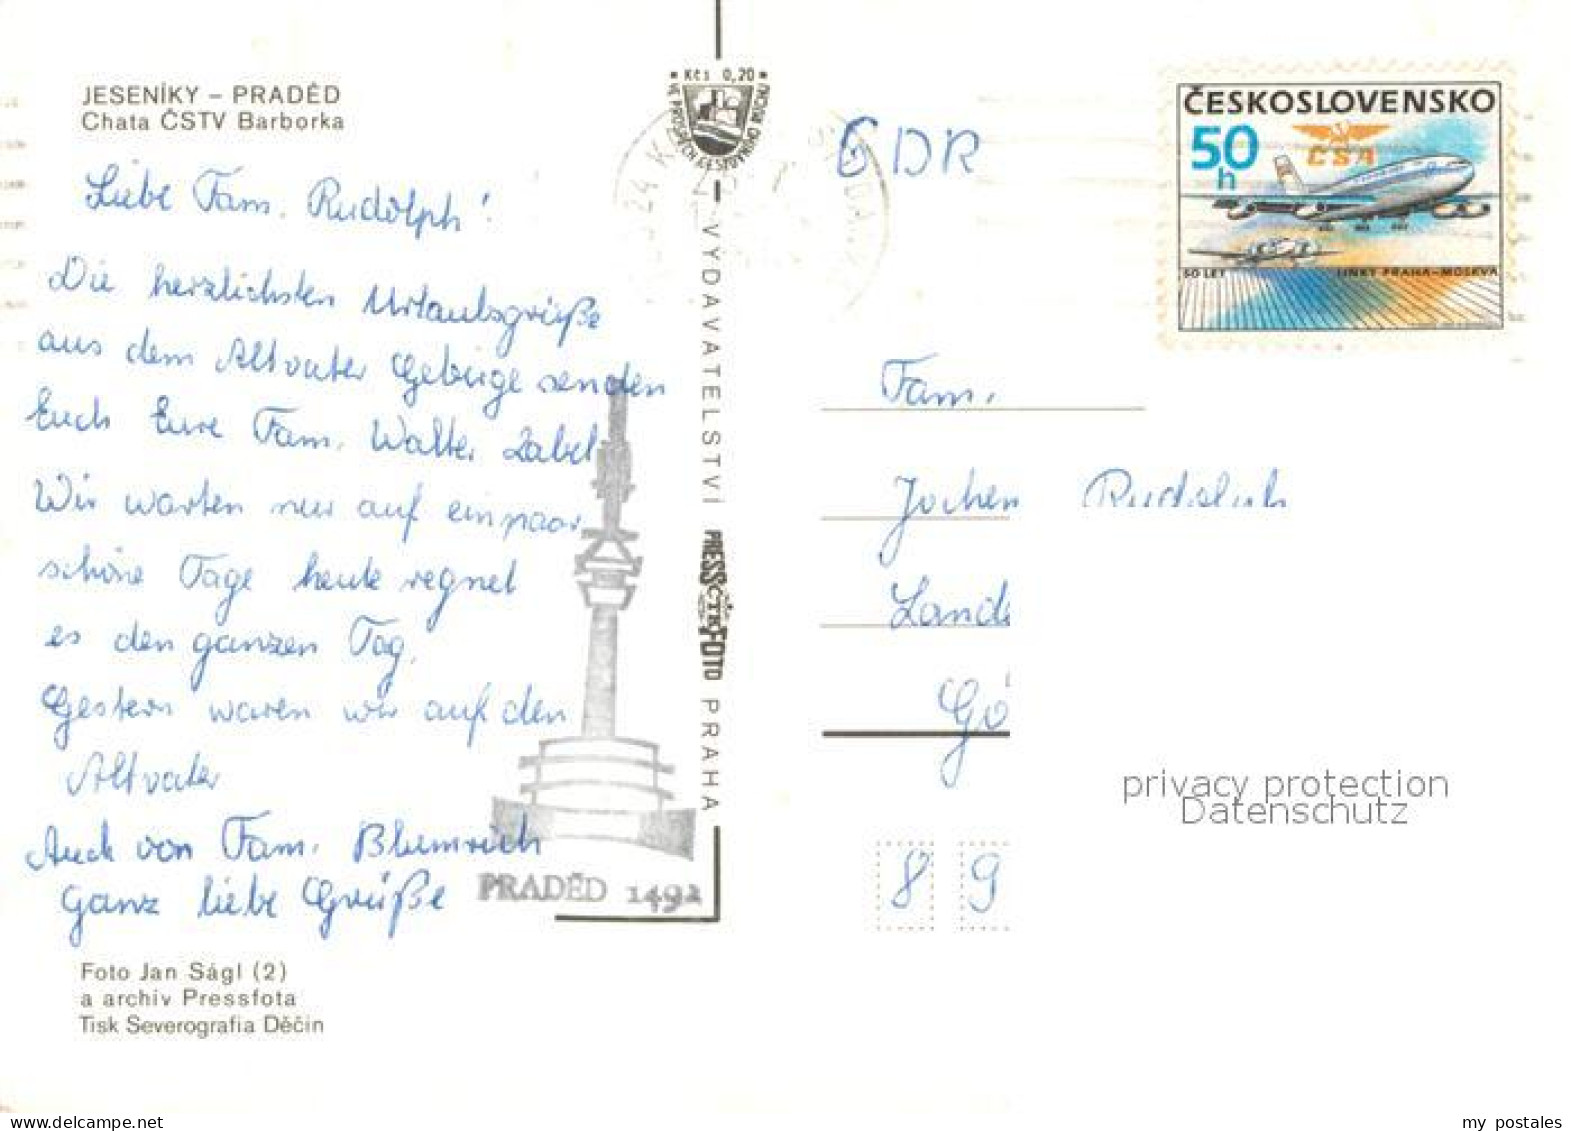 JESENÍKY – PRADĚD
Chata ČSTV Barborka
Liebe Fam. Rudolph!
Die herzlichsten Urlaubsgrüße
aus dem Altvater Gebirge senden
Euch Eure Fam. Walter Zabel
Wir warten nur auf ein paar
schöne Tage heute regnet
es den ganzen Tag.
Gestern waren wir auf den
Altvater
Auch von Fam. Blumrich
ganz liebe Grüße
PRADĚD 1492
Foto Jan Ságl (2)
a archiv Pressfota
Tisk Severografia Děčín
Kčs 0,20
VE PROSPĚCH ČESTAVNÍHO
VYDAVATELSTVÍ PRESSFOTO PRAHA
ČTK
GDR
ČESKOSLOVENSKO
50 h
ČSA
50 LET LINKY PRAHA–MOSKVA
Fam.
Jochen Rudolph
Lande
Gö
8 9
privacy protection
Datenschutz
my postales